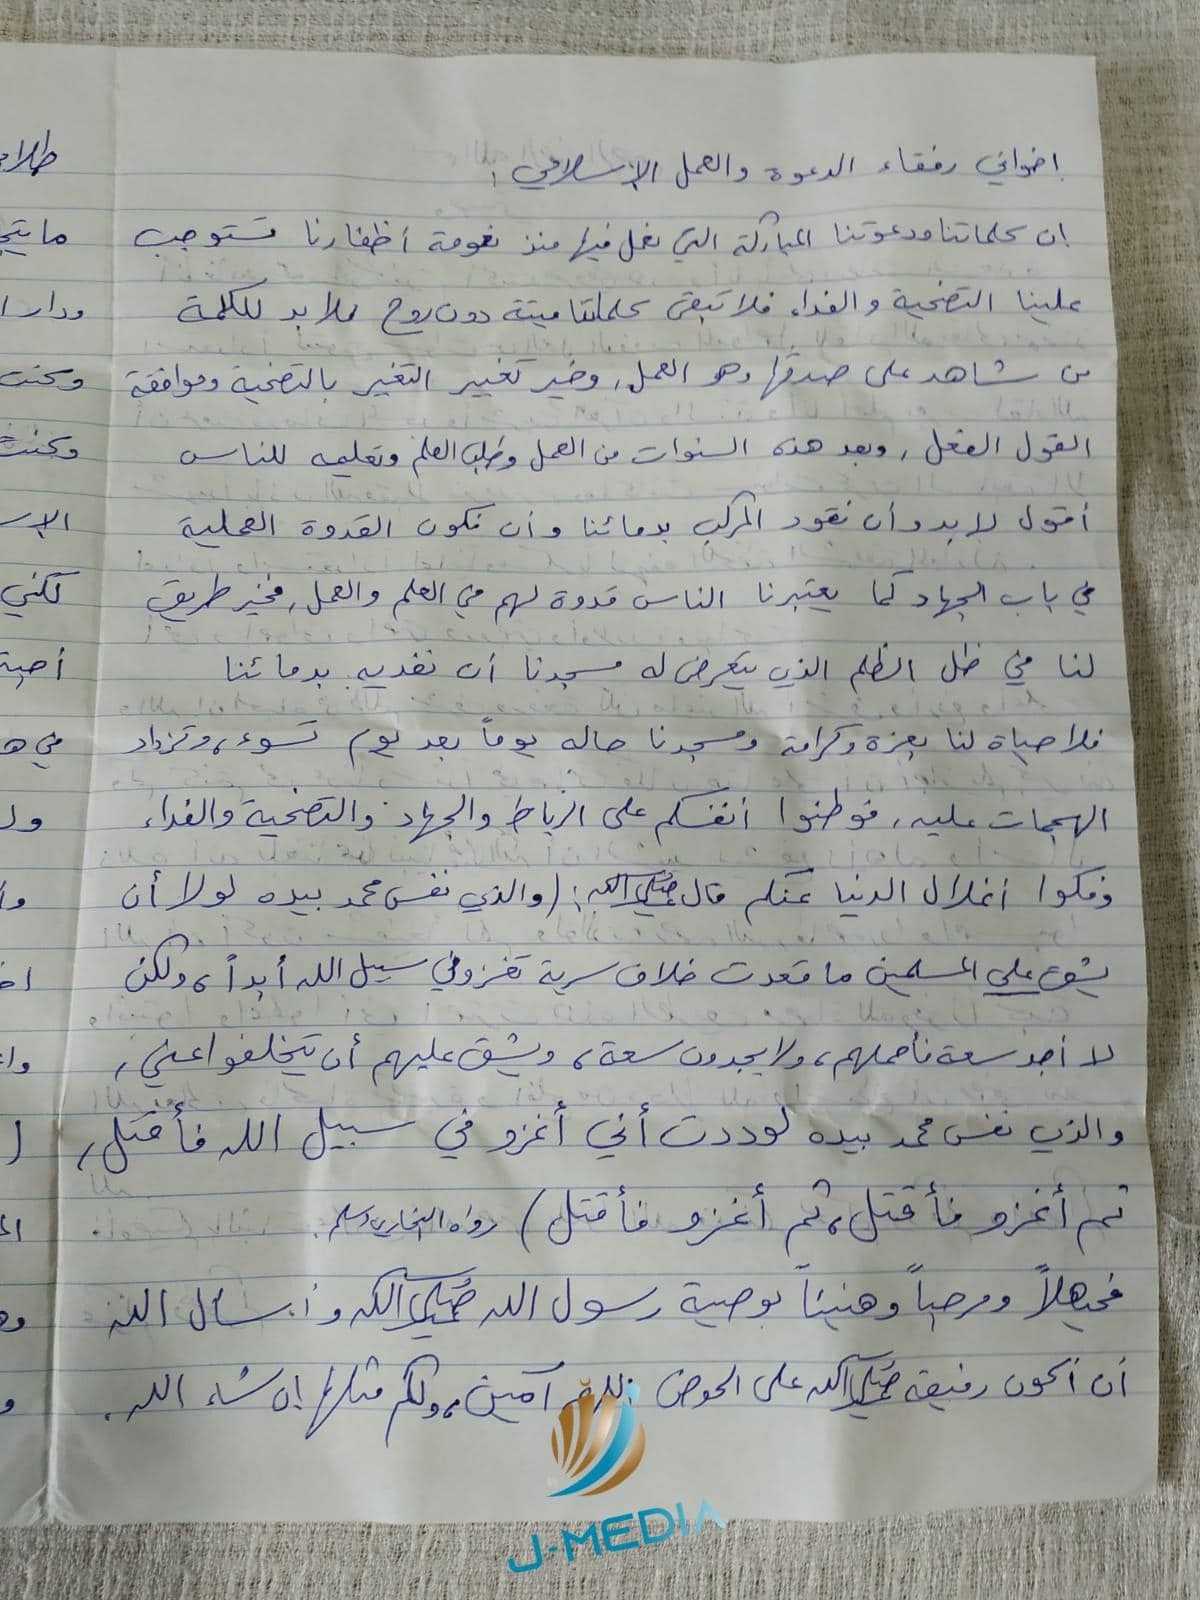 إخواني رفقاء الدعوة والعمل الإسلامي :
إن كلماتنا ودعوتنا المباركة التي نعمل فيها منذ نعومة أظفارنا تستوجب
علينا التضحية والفداء فلا تبقى كلماتنا ميتة دون روح فلا بد للكلمة
من شاهد على صدقها وهو العمل، وخير تغيير التغير بالتضحية وموافقة
القول الفعل، وبعد هذه السنوات من العمل وطلب العلم وتعليمه للناس
أقول لا بد وأن نقود المركب بدمائنا وأن نكون القدوة العملية
في باب الجهاد كما يعتبرنا الناس قدوة لهم في العلم والعمل، فخير طريق
لنا في ظل الظلم الذي يتعرض له مسجدنا أن نفديه بدمائنا
فلا حياة لنا بعزة وكرامة ومسجدنا حاله يوماً بعد يوم تسوء، وتزداد
الهجمات عليه، فوطنوا أنفسكم على الرباط والجهاد والتضحية والفداء
وفكوا أغلال الدنيا عنكم قال ﷺ: (والذي نفس محمد بيده لولا أن
يشق على المسلمين ما قعدت خلاف سرية تغزو في سبيل الله أبداً، ولكن
لا أجد سعة فأحملهم، ولا يجدون سعة، ويشق عليهم أن يتخلفوا عني،
والذي نفس محمد بيده لوددت أني أغزو في سبيل الله فأقتل،
ثم أغزو فأقتل، ثم أغزو فأقتل) رواه البخاري ومسلم.
فحيهلاً ومرحباً وهنيئاً بوصية رسول الله ﷺ وأسأل الله
أن أكون رفيقه ﷺ على الحوض اللهم آمين، ولكم مثلها إن شاء الله.
J-MEDIA